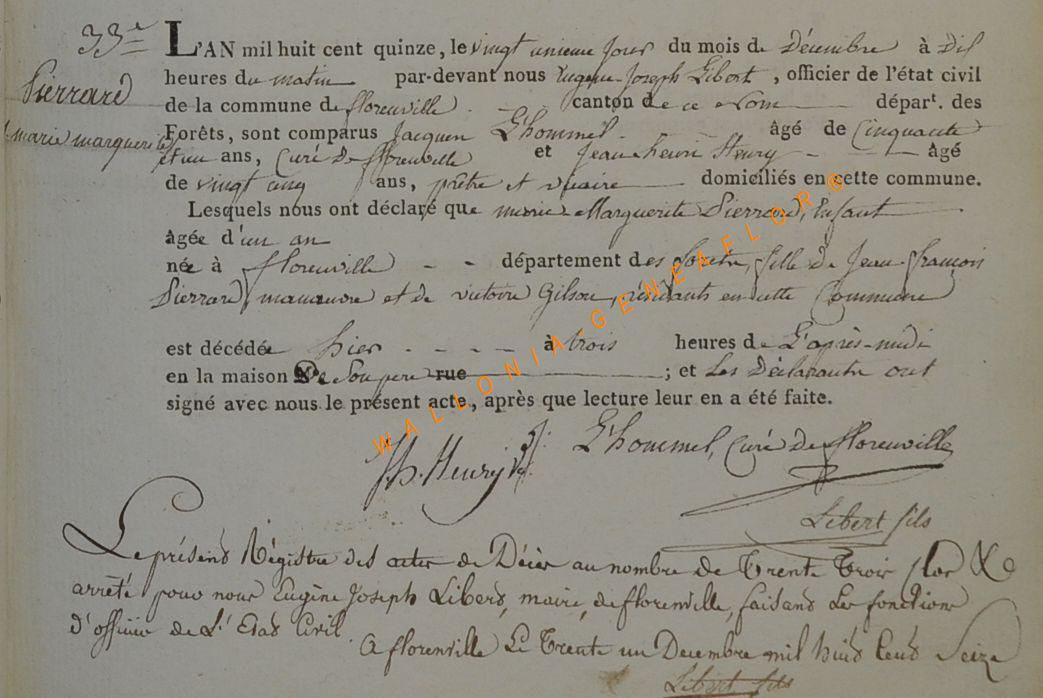 33e
Pierrard
marie marguerite
L'AN mil huit cent quinze, le vingt unieme jour du mois de Décembre à Dix
heures du matin par-devant nous Eugene Joseph Libert, officier de l'état civil
de la commune de florenville. canton de ce Nom départ. des
Forêts, sont comparus Jacques L'hommel. âgé de Cinquante
et un ans, Curé de florenville et Jean henri Henry âgé
de vingt cinq ans, prêtre et vicaire domiciliés en cette commune.
Lesquels nous ont déclaré que marie Marguerite Pierrard, Enfant
âgée d'un an
née à florenville - - département des forêts, fille de Jean françois
Pierrard, manœuvre et de victoire Gilson, résidants en cette Commune
est décédée hier - - - - à trois heures de L'après-midi
en la maison De Son pere rue ; et Les Déclarants ont
signé avec nous le présent acte, après que lecture leur en a été faite.
Jh. Henry L'hommel, Curé de florenville
Libert fils
Le présend Régistre des actes de Décès au nombre de Trente Trois clos &
arrêté pour nous Eugène Joseph Liberd, maire, de florenville, faisand Les fonctions
d'officier de L'Etad Civil.
A florenville Le Trente un Decembre mil huid Cend Seize
Libert fils
WALLONIA-GENEAFLOR®